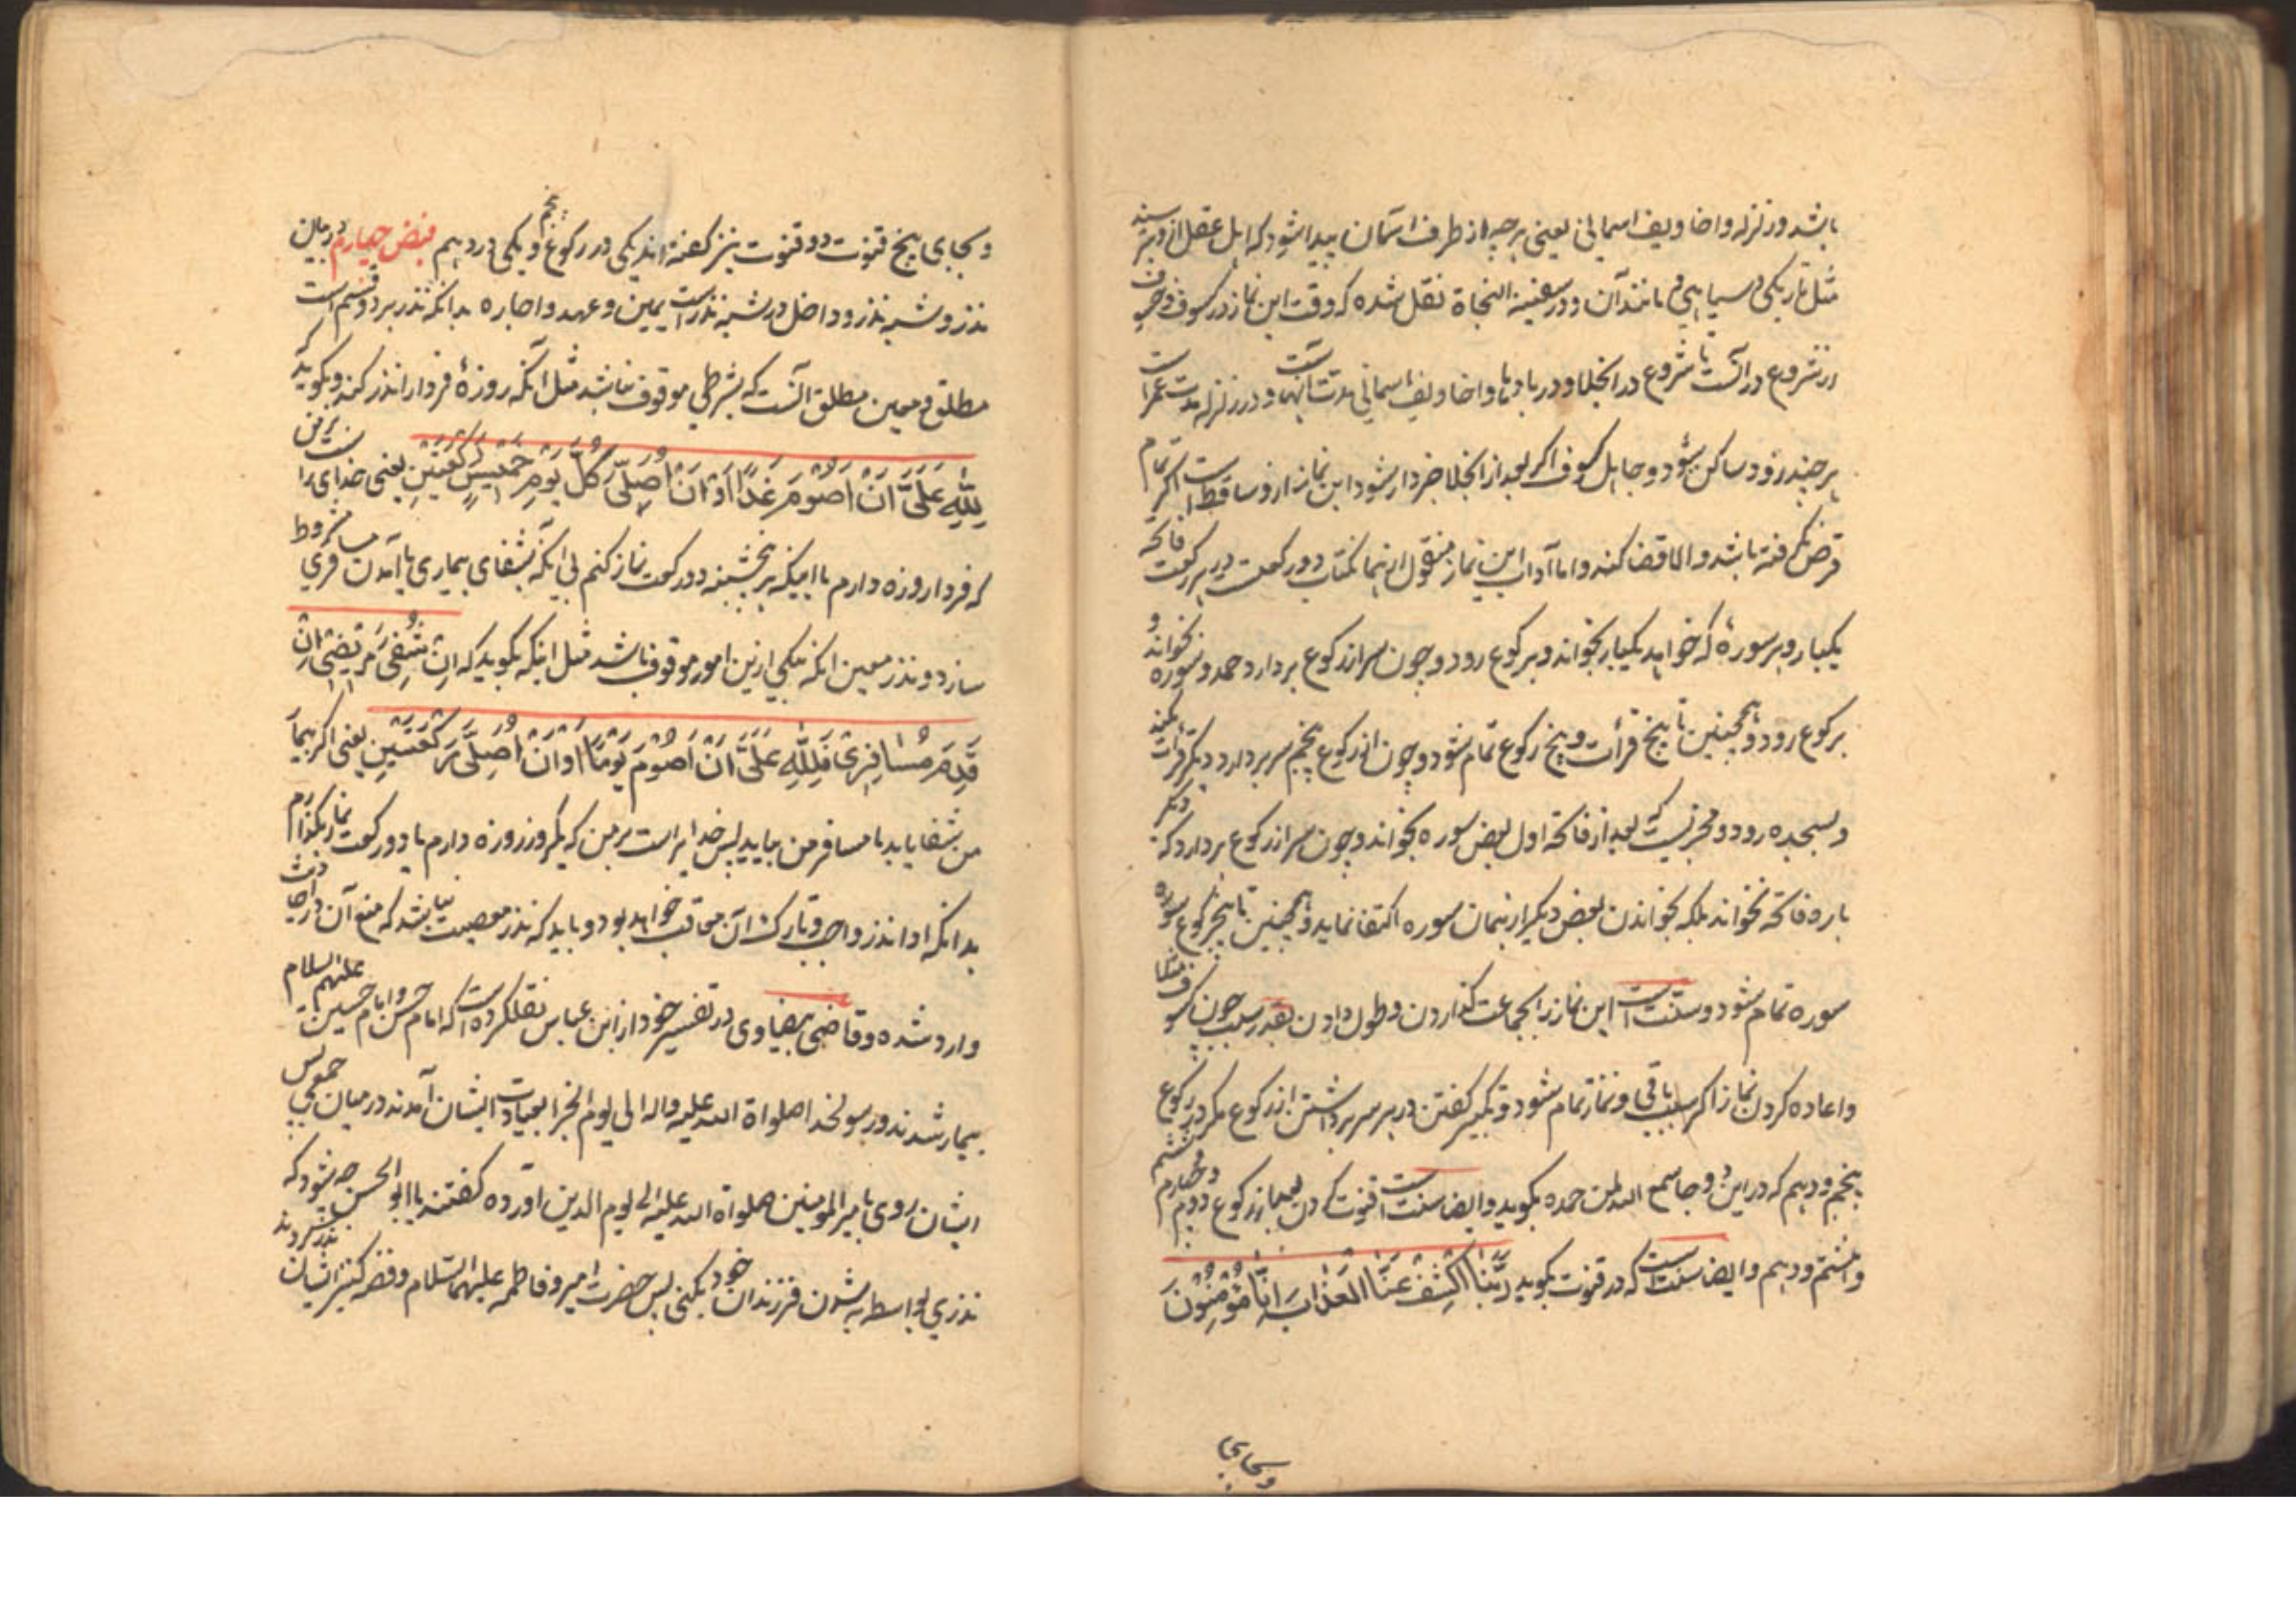 باشد و زلزله و اخاویف اسمانی یعنی هر چه از طرف اسمان پیدا شود که اهل عقل ازو بترسند
مثل تاریکی و سیاهی و مانند آن و در سفینة النجاة نقل شده که وقت این نماز در کسوف و خسوف
از شروع در آنست تا شروع در انجلا و در بادها و اخاویف اسمانی مدت آنهاست و در زلزله مدت عمر است
هر چند زود ساکن شود و جاهل کسوف اگر بعد از انجلا خبردار شود این نماز ازو ساقط است اگر تمام
قرص نگرفته باشد و الا قضا کند و اما آداب این نماز منقول از بها کتاب دو رکعت در هر رکعت فاتحه
یکبار و هر سوره که خواهد یکبار بخواند و برکوع رود و چون سر از رکوع بردارد حمد و سوره بخواند و
برکوع رود و همچنین تا پنج قرأت و پنج رکوع تمام شود و چون از رکوع پنجم سر بردارد دیگر قرأت نکند
و بسجده رود و مخیرست که بعد از فاتحه اول بعض سوره بخواند و چون سر از رکوع بردارد که دیگر
باره فاتحه نخواند بلکه بخواندن بعض دیگر از همان سوره اکتفا نماید و همچنین تا پنج رکوع سوره
سوره تمام شود و سنت است این نماز را بجماعت گذاردن و طول دادن بقدر سبب چون کسوف مثلا
و اعاده کردن نماز اگر سبب باقی و نماز تمام شود و تکبیر گفتن در هر سر برداشتن از رکوع مگر در رکوع
پنجم و دهم که در این دو جا سمع الله لمن حمده بگوید و ایضا سنت است قنوت کردن بعد از رکوع دوم و چهارم و ششم
و هشتم و دهم و ایضا سنت است که در قنوت بگوید رَبَّنَا اکْشِفْ عَنَّا الْعَذَابَ اِنَّا مُؤْمِنُونَ
و بجای
و بجای پنج قنوت دو قنوت نیز گفته اند یکی در رکوع پنجم و یکی در دهم فیض چهارم در بیان
نذر و شبه نذر و داخل در شبه نذر است یمین و عهد و اجاره بدانکه نذر بر دو قسم است
مطلق و معین مطلق آنست که بشرطی موقوف نباشد مثل آنکه روزهٔ فردا را نذر کند و بگوید که
لِلّٰهِ عَلَیَّ اَنْ اَصُومَ غَدًا اَوْ اَنْ اُصَلِّیَ کُلَّ یَوْمِ خَمِیسٍ رَکْعَتَیْنِ یعنی خدای راست بر من
که فردا روزه دارم یا اینکه هر پنجشنبه دو رکعت نماز کنم بی آنکه بشفای بیماری یا آمدن مسافری مشروط
سازد و نذر معین آنکه بیکی ازین امور موقوف باشد مثل اینکه بگوید که اِنْ شُفِیَ مَرِیضِی اِنْ
قَدِمَ مُسَافِرِی فَلِلّٰهِ عَلَیَّ اَنْ اَصُومَ یَوْمًا اَوْ اَنْ اُصَلِّیَ رَکْعَتَیْنِ یعنی اگر بیمار
من شفا یابد یا مسافر من بیاید پس خدایراست بر من که یکروز روزه دارم یا دو رکعت نماز بگذارم
بدانکه ادا نذر واجب و تارک آن معاقب خواهد بود و باید که نذر معصیت نباشد که منع آن در احادیث
وارد شده و قاضی بیضاوی در تفسیر خود از ابن عباس نقلکرده است که امام حسن و امام حسین علیهم السلام
بیمار شدند و رسولخدا صلواة الله علیه واله الی یوم الجزا بعیادت ایشان آمدند در میان جمعی پس
ایشان روی بامیر المومنین صلواة الله علیه الی یوم الدین آورده گفتند یا ابو الحسن چه شود که
نذری بواسطه به شدن فرزندان خود بکنی پس حضرت امیر و فاطمه علیهما السّلام و فضه کنیز ایشان نذر کردند